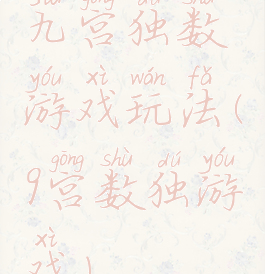 jiǔ gōng dú shù
九宫独数
yóu xì wán fǎ
游戏玩法(
gōng shù dú yóu
9宫数独游
xì
戏)